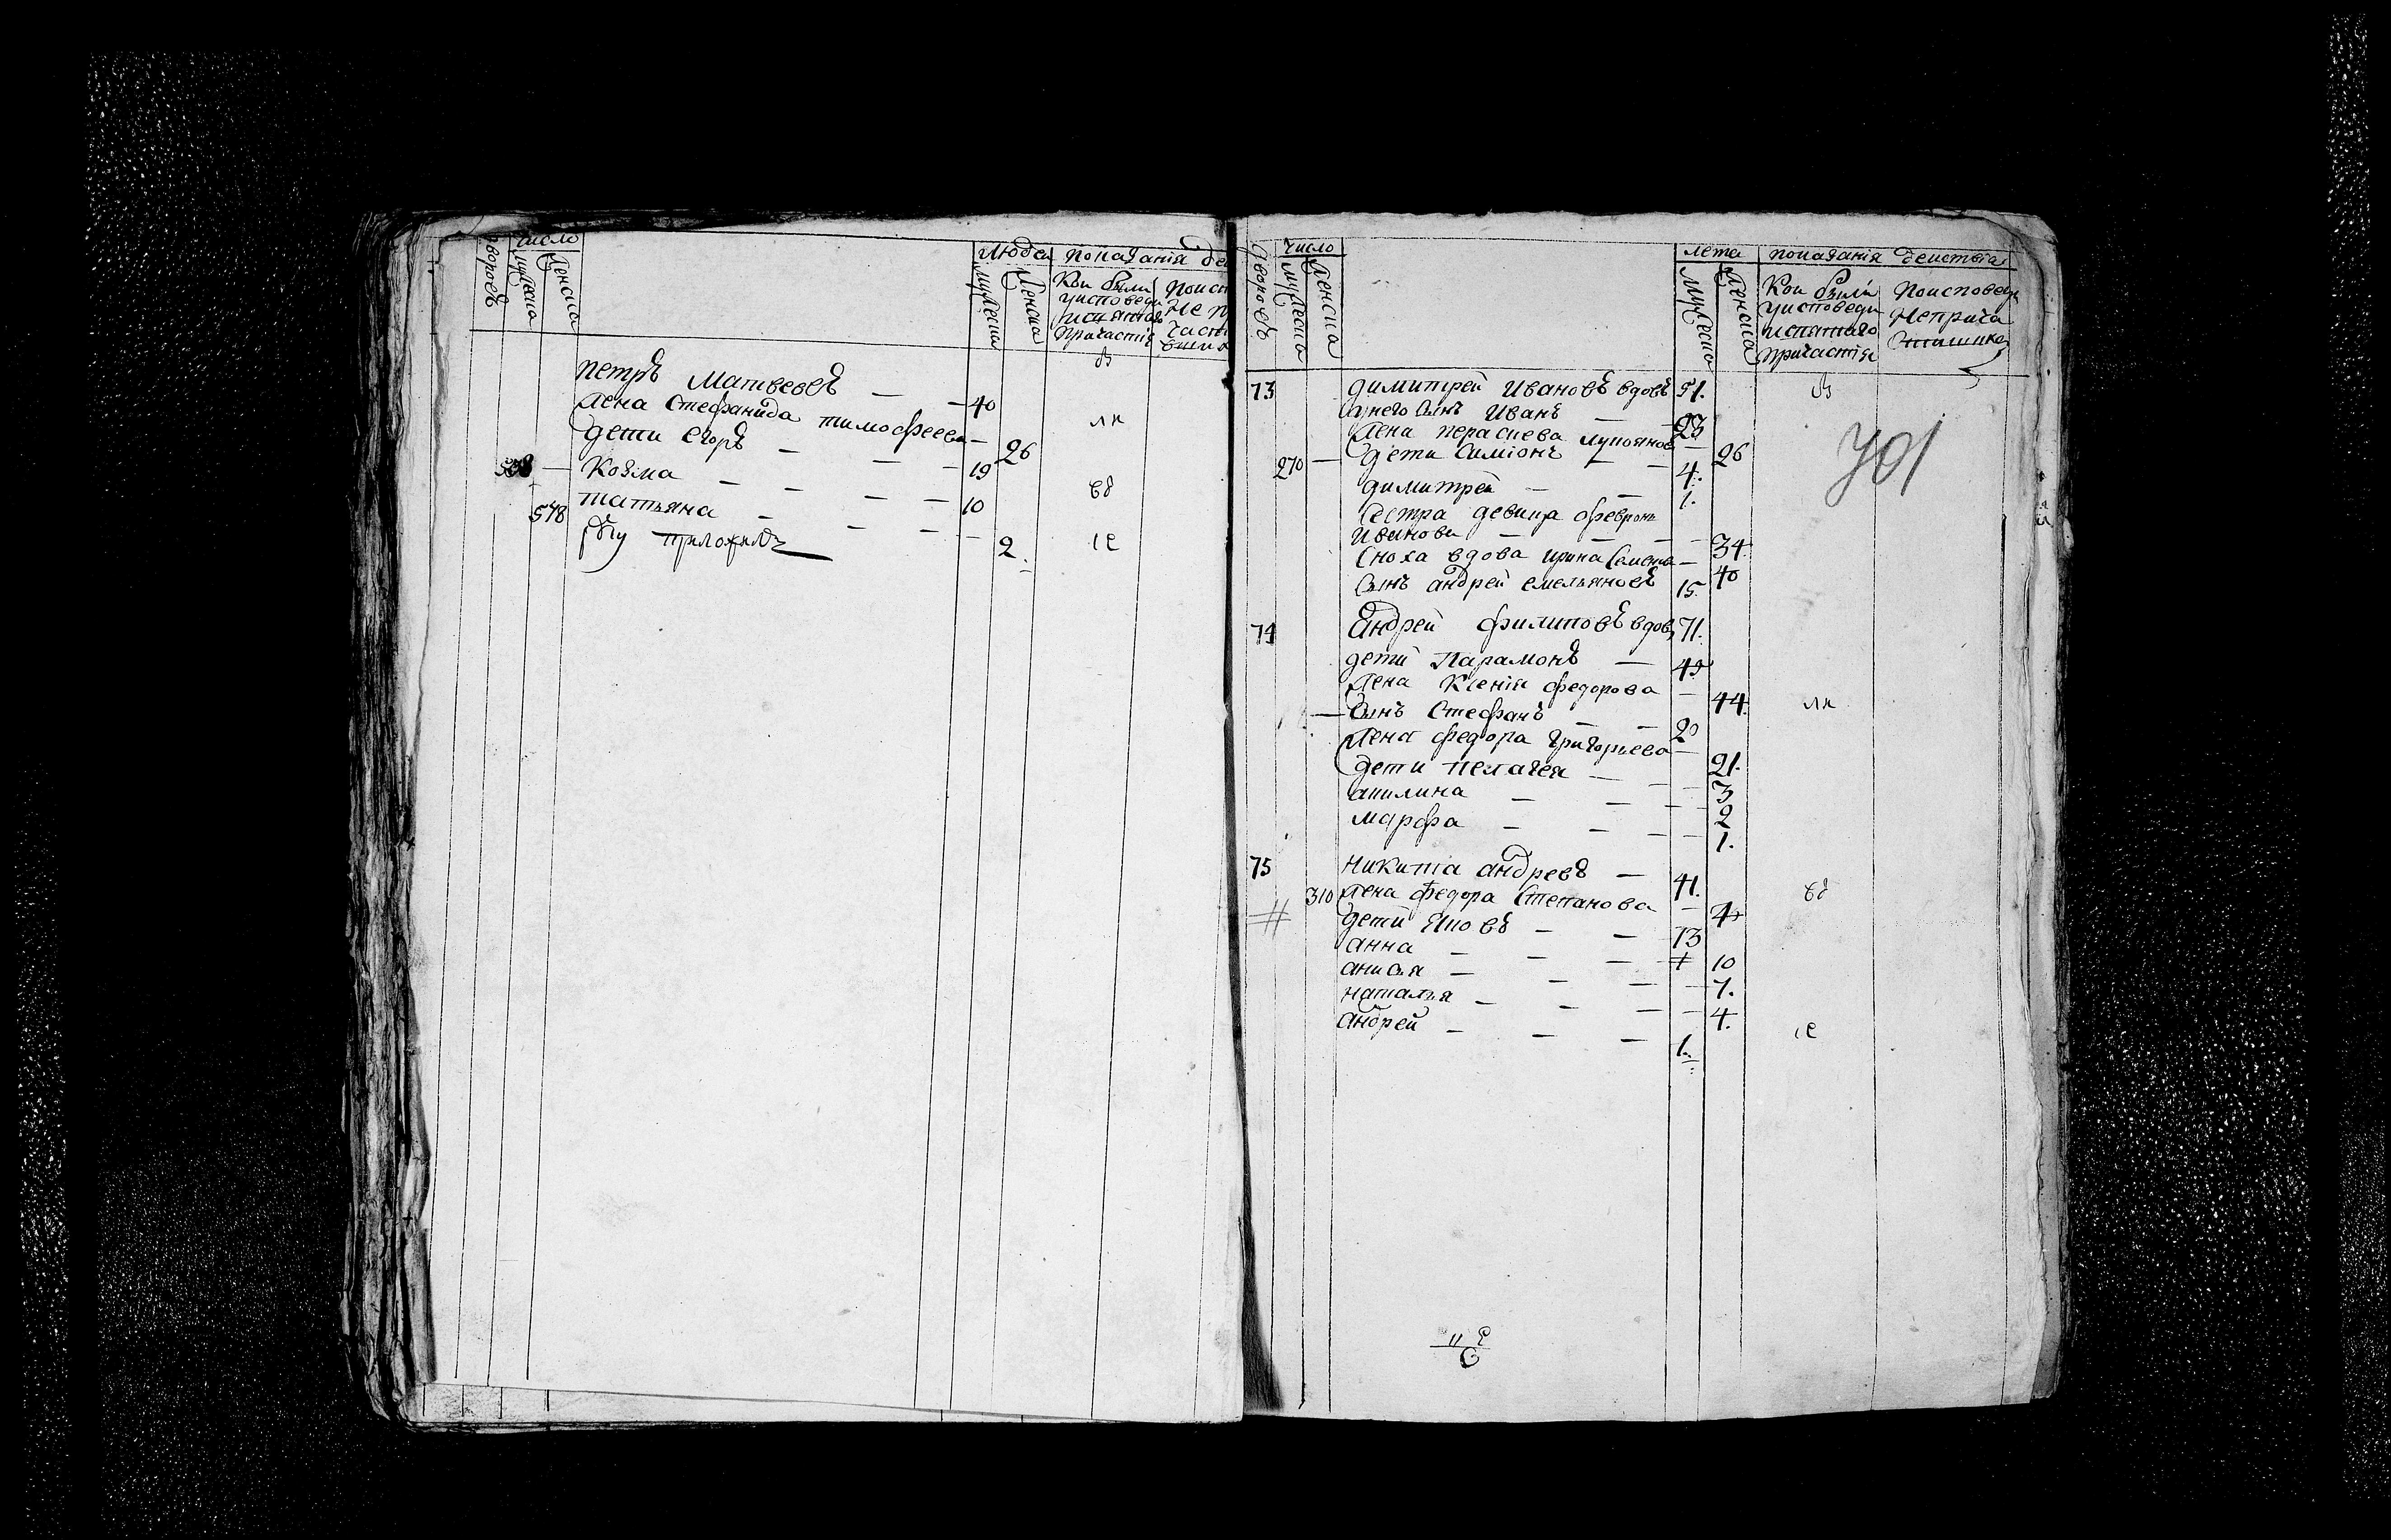 число
дворовъ
мужеска
женска
людей
мужеска
женска
показанiя
Кои были
уисповеди
исвятаго
причастiя
петръ Матвеевъ — — 40
жена Стефанида тимофеева — 26
дети егоръ — — — 19
Козма — — — — 10
татьяна — — — — 2
578
в
лк
вѣ
се
число
дворовъ
мужеска
женска
лета
мужеска
женска
показанiя действа
Кои были
уисповеди
исвятаго
причастiя
Поисповед
Неприча
73 димитрей Ивановъ вдовъ 51.
унего сынъ Иванъ —
жена параскева — 26
270 — дети Симiонъ — — 4.
димитрей — — 1.
Сестра девица феврон
Иванова — — — 34.
Сноха вдова ирина Семенова — 40
Сынъ андрей емельяновъ 15.
74 Андрей филиповъ вдов 71.
дети Парамонъ — 43
жена Ксенiя федорова — 44.
— Сынъ Стефанъ — — 20
жена федора григорьева — 21.
дети пелагея — — — 3
акилина — — — 2
марфа — — — — 1.
75 никита андреевъ — 41.
310 жена федора Степанова — 40
дети яковъ — — 13
анна — — — 10
анисья — — — — 7.
наталья — — — — 4.
андрей — — — 1.
701
в
лк
вѣ
се